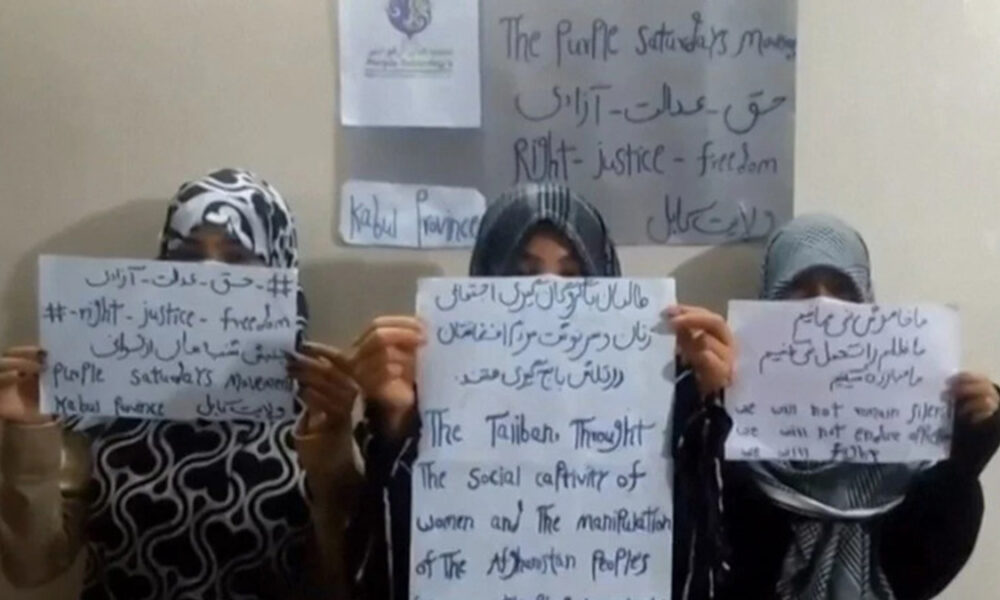 The Purple Saturdays
حق - عدالت - آزادی
Right - justice - freedom
Kabul Province
ولایت کابل
# - حق - عدالت - آزادی
# - right - justice - freedom
Purple Saturdays Movement
Kabul Province ولایت کابل
طالبان با گروگان گیری اجتماعی
زنان و سرنوشت مردم افغانستان
در تلاش باج گیری هستند.
The Taliban, Thought
The social captivity of
women and The manipulation
of The Afghanistan Peoples
ما خاموش نمی مانیم
ما ظلم را تحمل نمی کنیم
ما مبارزه میکنیم
we will not remain silent
we will not endure
we will fight